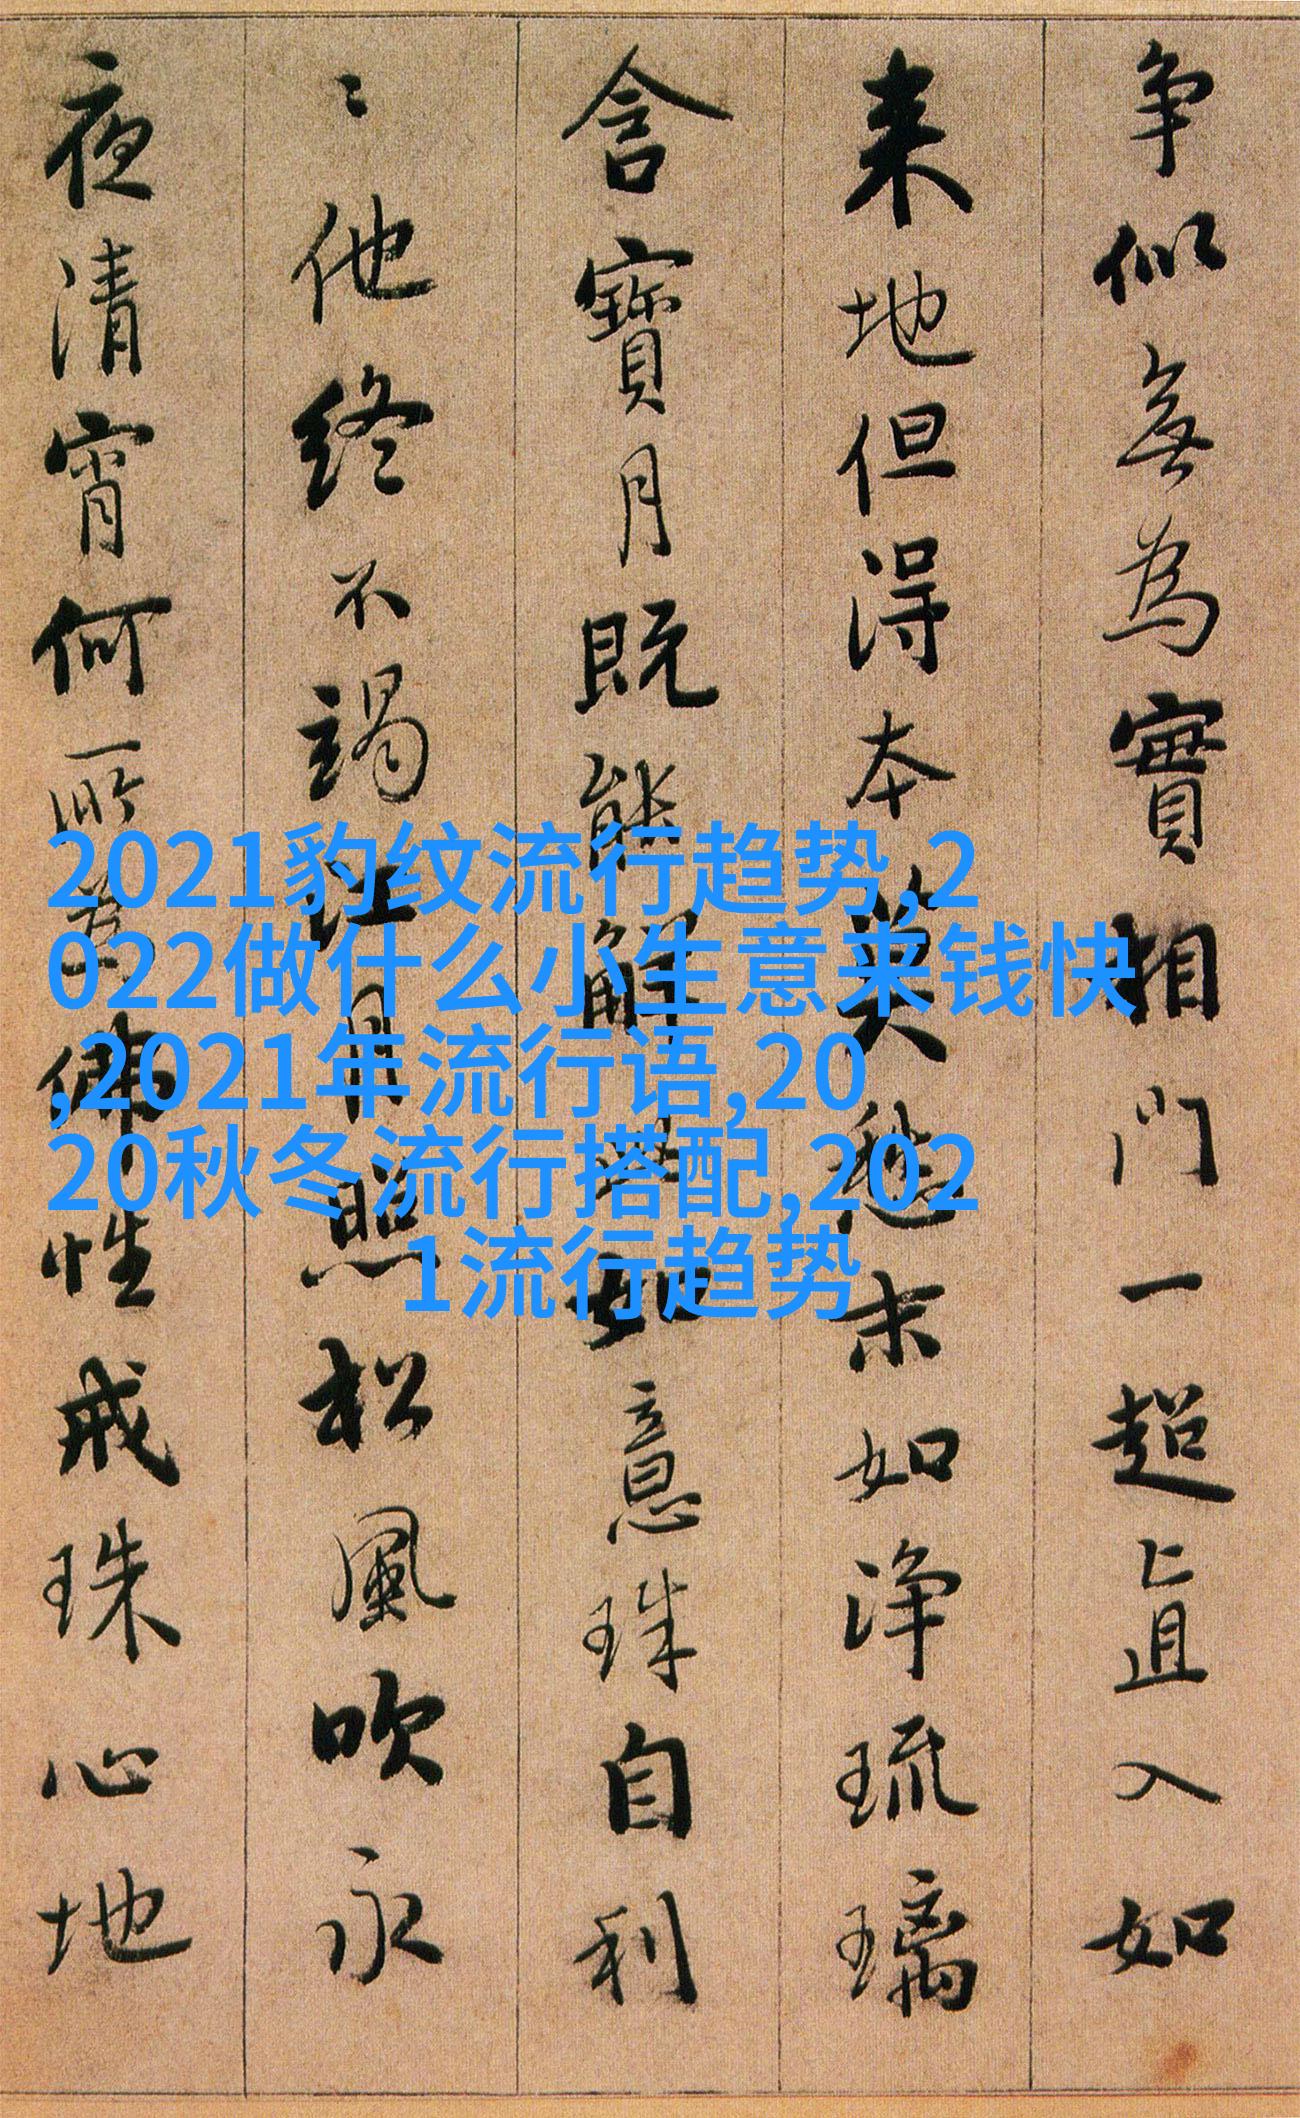 争似無為實相門一超直入如
来地但得本莫愁末如浄琉璃
含寶月既能解此如意珠自利
々他终不竭江月照松風吹永
夜清宵何所為佛性戒珠心地
2021豹纹流行趋势,2
022做什么小生意来钱快
,2021年流行语,20
20秋冬流行搭配,202
1流行趋势